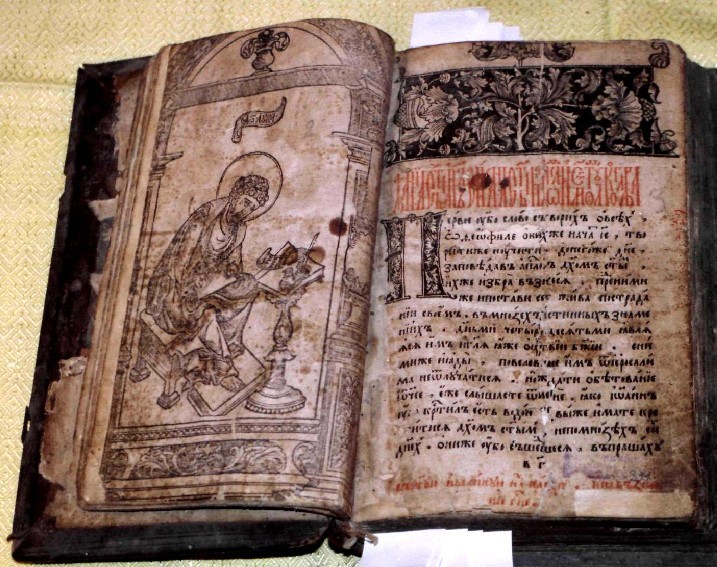 Первое ѹбо слово сътворихъ ѡвсѣхъ,
ѽ, ѳеофиле онихже начатъ і҃с, тво
ритиже иѹчити. донегоже дн҃е
заповѣдавъ ап҃лом дх҃омъ ст҃ымъ
ихже избра възнесеся. пред ними
же ипостави себе жива пострада
нии своемъ, въмнозѣхъ истинныхъ знаме
ниихъ. дн҃ьми четыредесятьми являя
яся имъ, игл҃я яже оцр҃твіи бж҃іи. сни
миже іяды, повелеваше имъ ѿіерусали
ма неѿлучатися, ножидати обѣтованіе
ѻч҃ее, еже слышасте ѿмене, яко іѡаннъ
ѹбо кр҃тилъ есть водою, выже имате кре
ститися дх҃омъ ст҃ымъ, непомнозѣхъ сих
дн҃ехъ. ониже ѹбо съшедшеся, въпрашахѹ